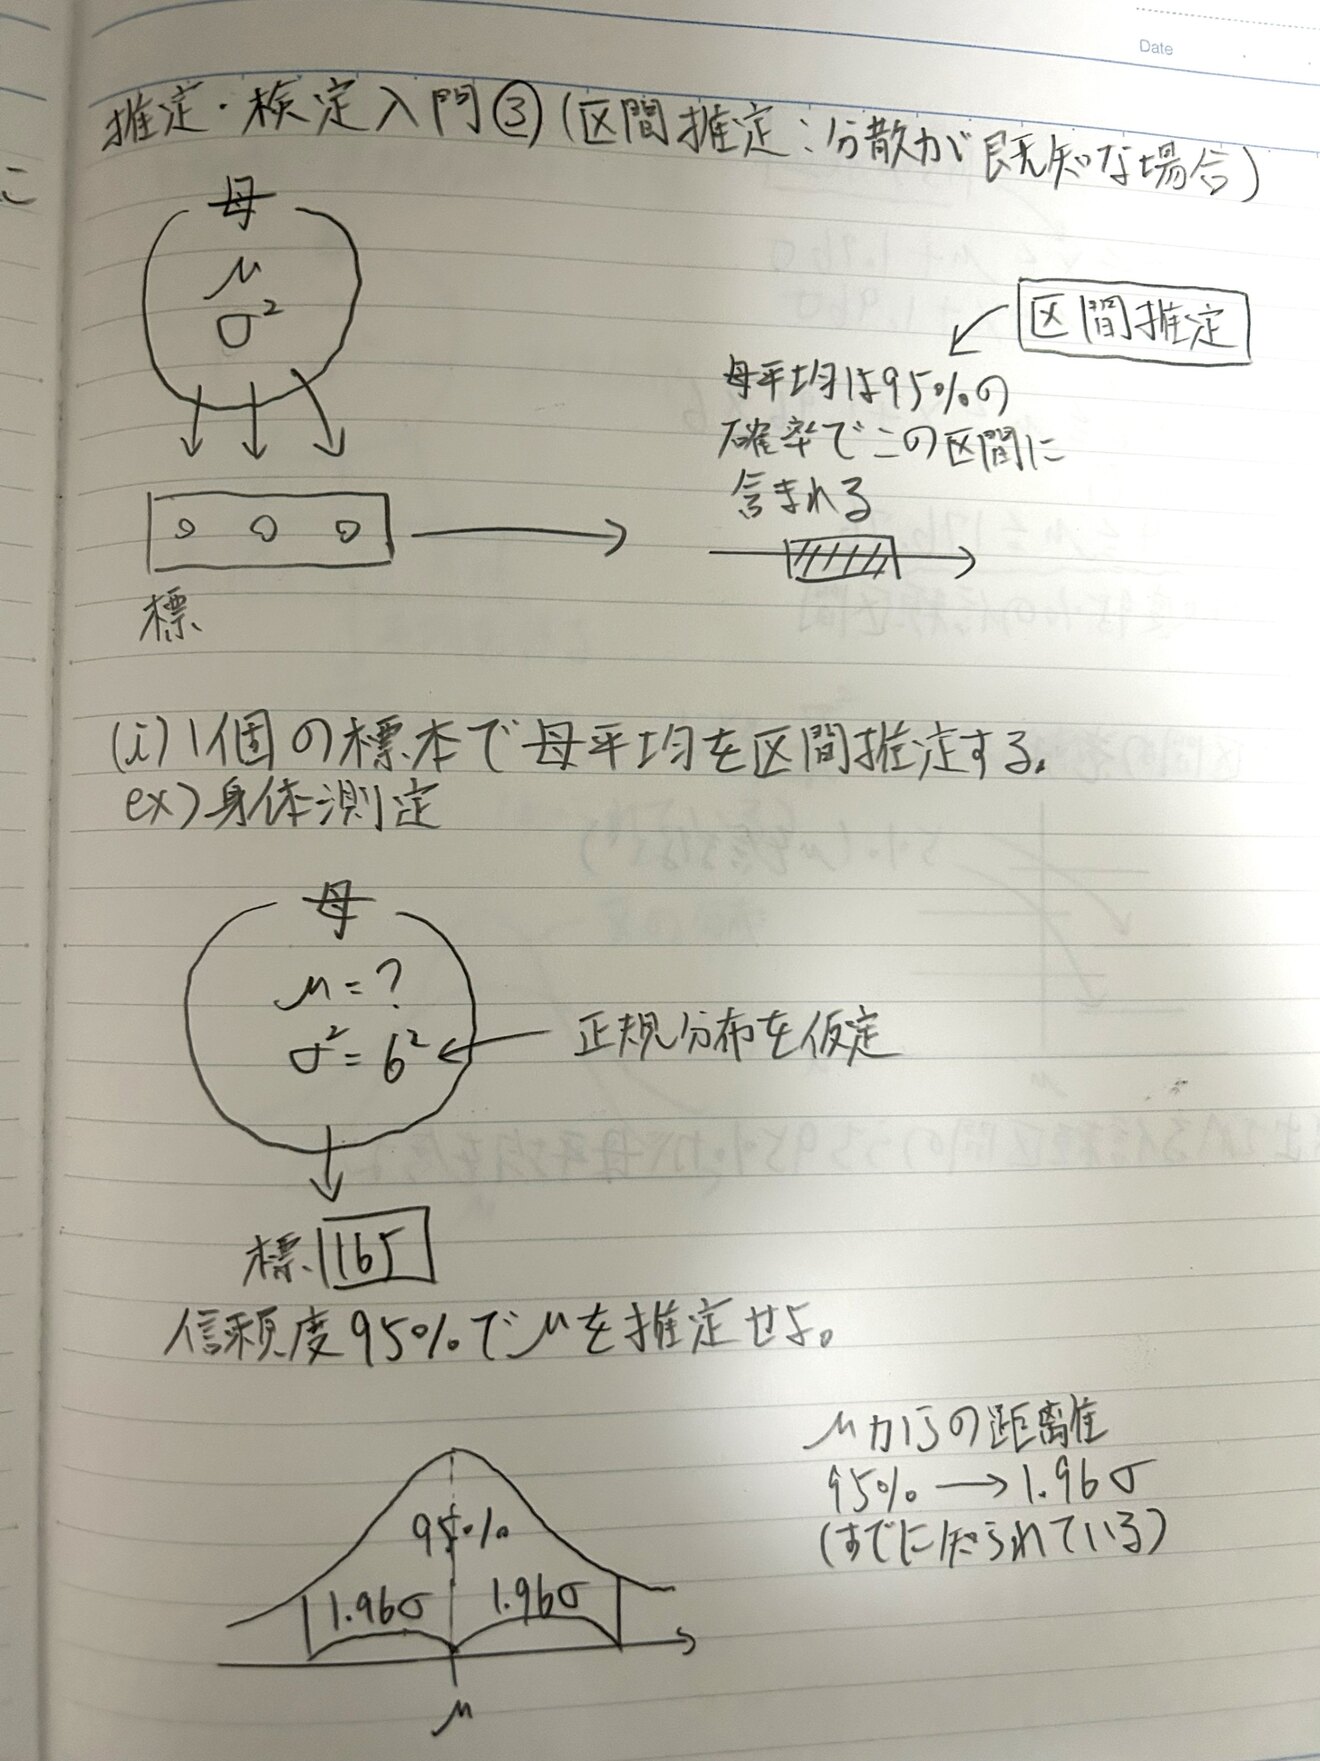 Date
推定・検定入門③(区間推定:分散が既知な場合)
母
μ
σ²
区間推定
母平均は95%の
確率でこの区間に
含まれる
標
(i)1個の標本で母平均を区間推定する。
ex)身体測定
母
μ=?
σ²=6²
正規分布を仮定
標 165
信頼度95%でμを推定せよ。
μからの距離
95%→1.96σ
(すでに知られている)
95%
1.96σ 1.96σ
μ